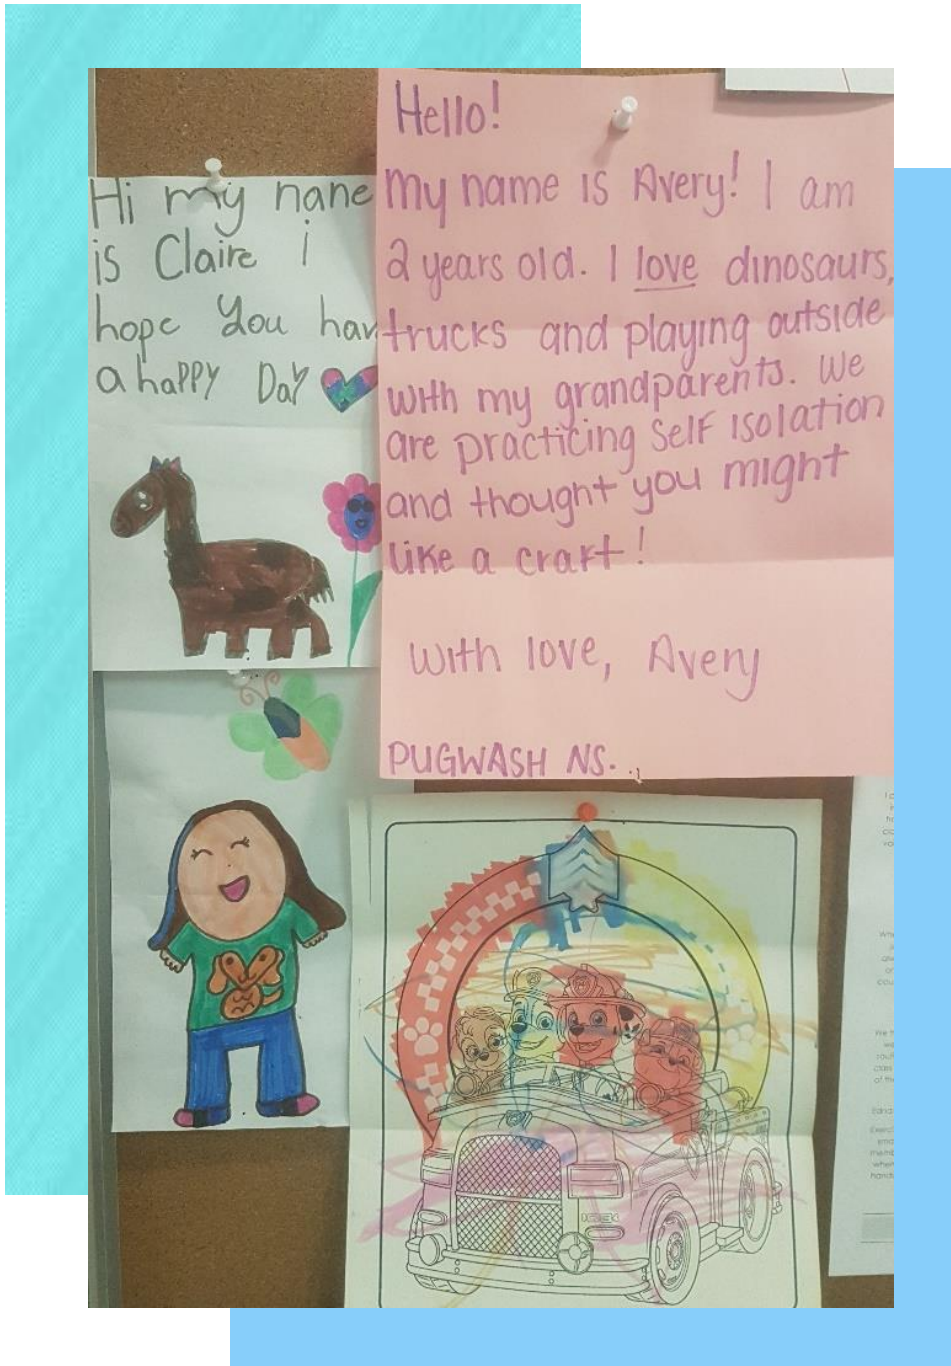 Hi my nane
is Claire i
hope you hav
a happy Day
Hello!
My name is Avery! I am
2 years old. I love dinosaurs,
trucks and playing outside
with my grandparents. We
are practicing self isolation
and thought you might
like a craft!
With love, Avery
PUGWASH NS.